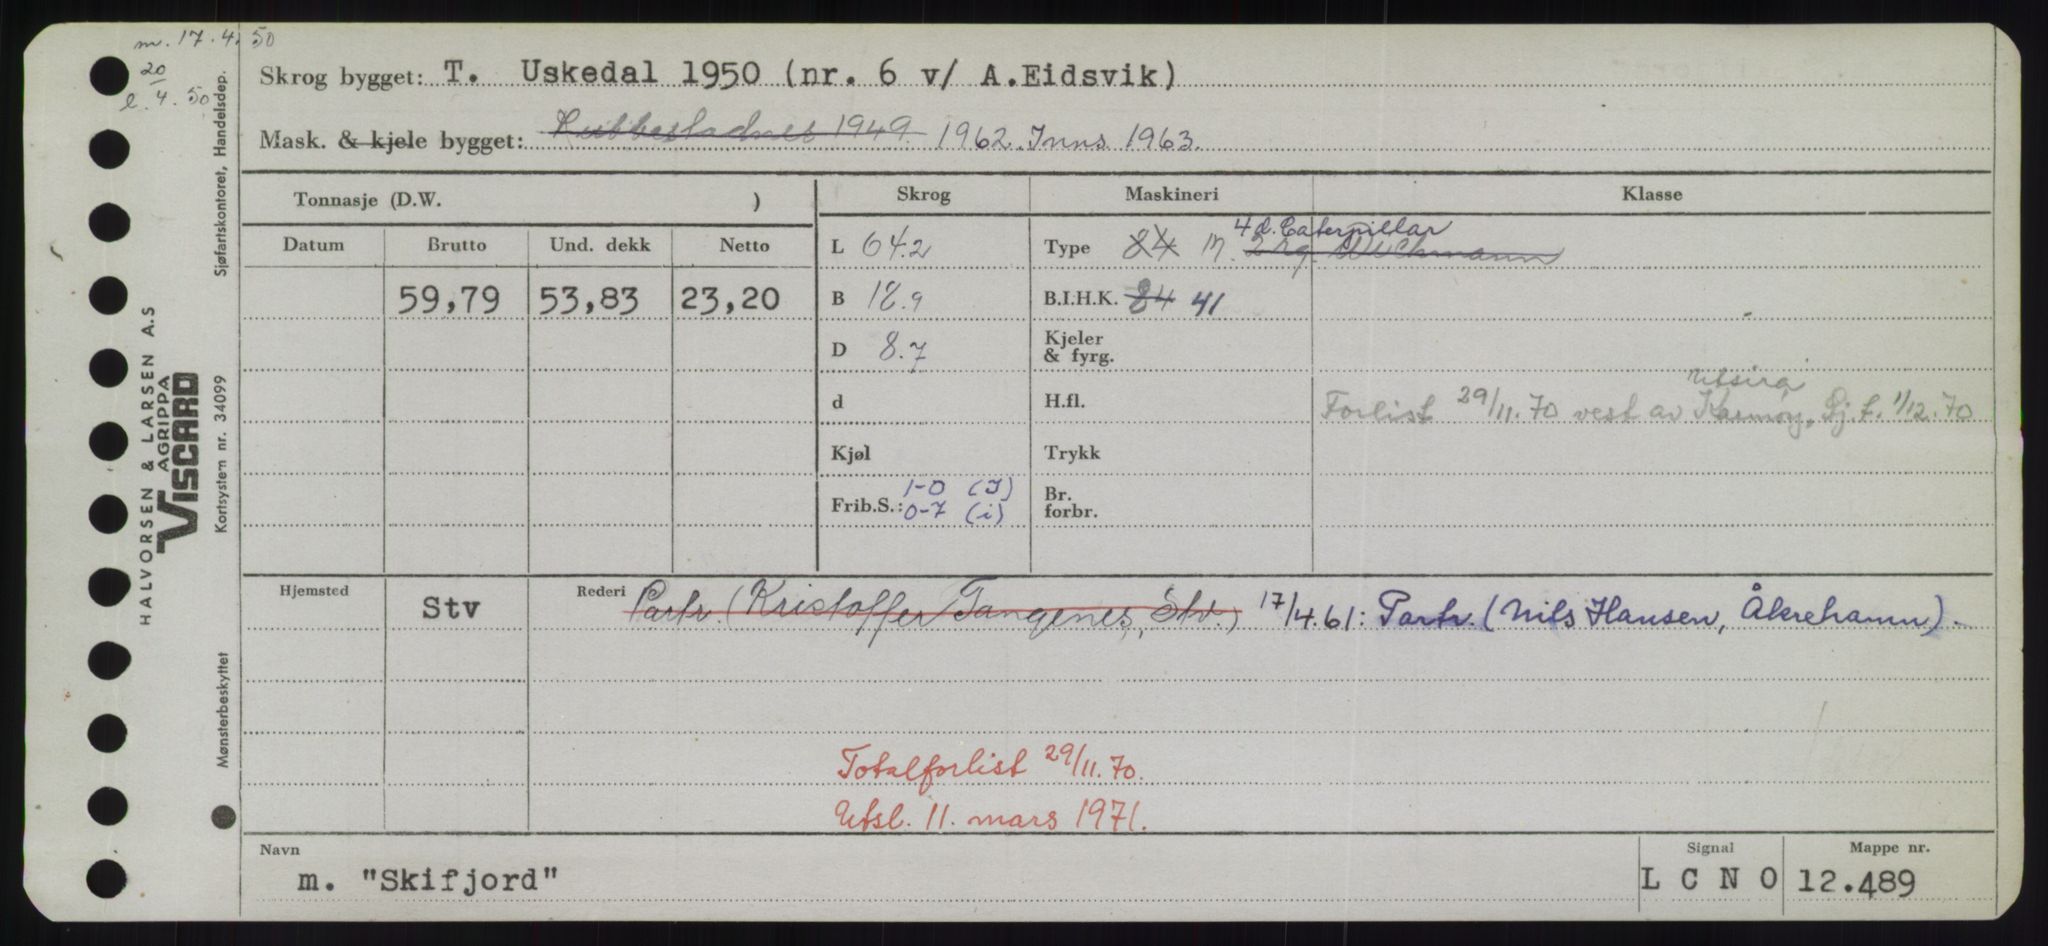 m. 17.4.50
20
l. 4. 50
Skrog bygget: T. Uskedal 1950 (nr. 6 v/ A.Eidsvik)
Mask. & kjele bygget: Rubbestadnes 1949. 1962. Inns. 1963.
Tonnasje (D.W. )
Skrog
Maskineri
Klasse
Datum Brutto Und. dekk Netto
59,79 53,83 23,20
L 64.2
B 18.9
D 8.7
d
Kjøl
Frib.S.: 1-0 (J)
0-7 (i)
4 d. Caterpillar
Type 84 M. 2 Wichmann
B.I.H.K. 84 41
Kjeler
& fyrg.
H.fl.
Trykk
Br.
forbr.
Utsira
Forlist 29/11.70 vest av Karmøy, Sj.f. 1/12.70
Hjemsted Stv
Rederi Partr. (Kristoffer Tangenes, Stv.) 17/4.61: Partr. (Nils Hansen, Åkrehamn).
Totalforlist 29/11.70.
Utsl. 11. mars 1971.
Navn m. "Skifjord"
Signal L C N O
Mappe nr. 12.489
HALVORSEN & LARSEN A.S
AGRIPPA
VISCARD
Mønsterbeskyttet Kortsystem nr. 34099 Sjøfartskontoret, Handelsdep.